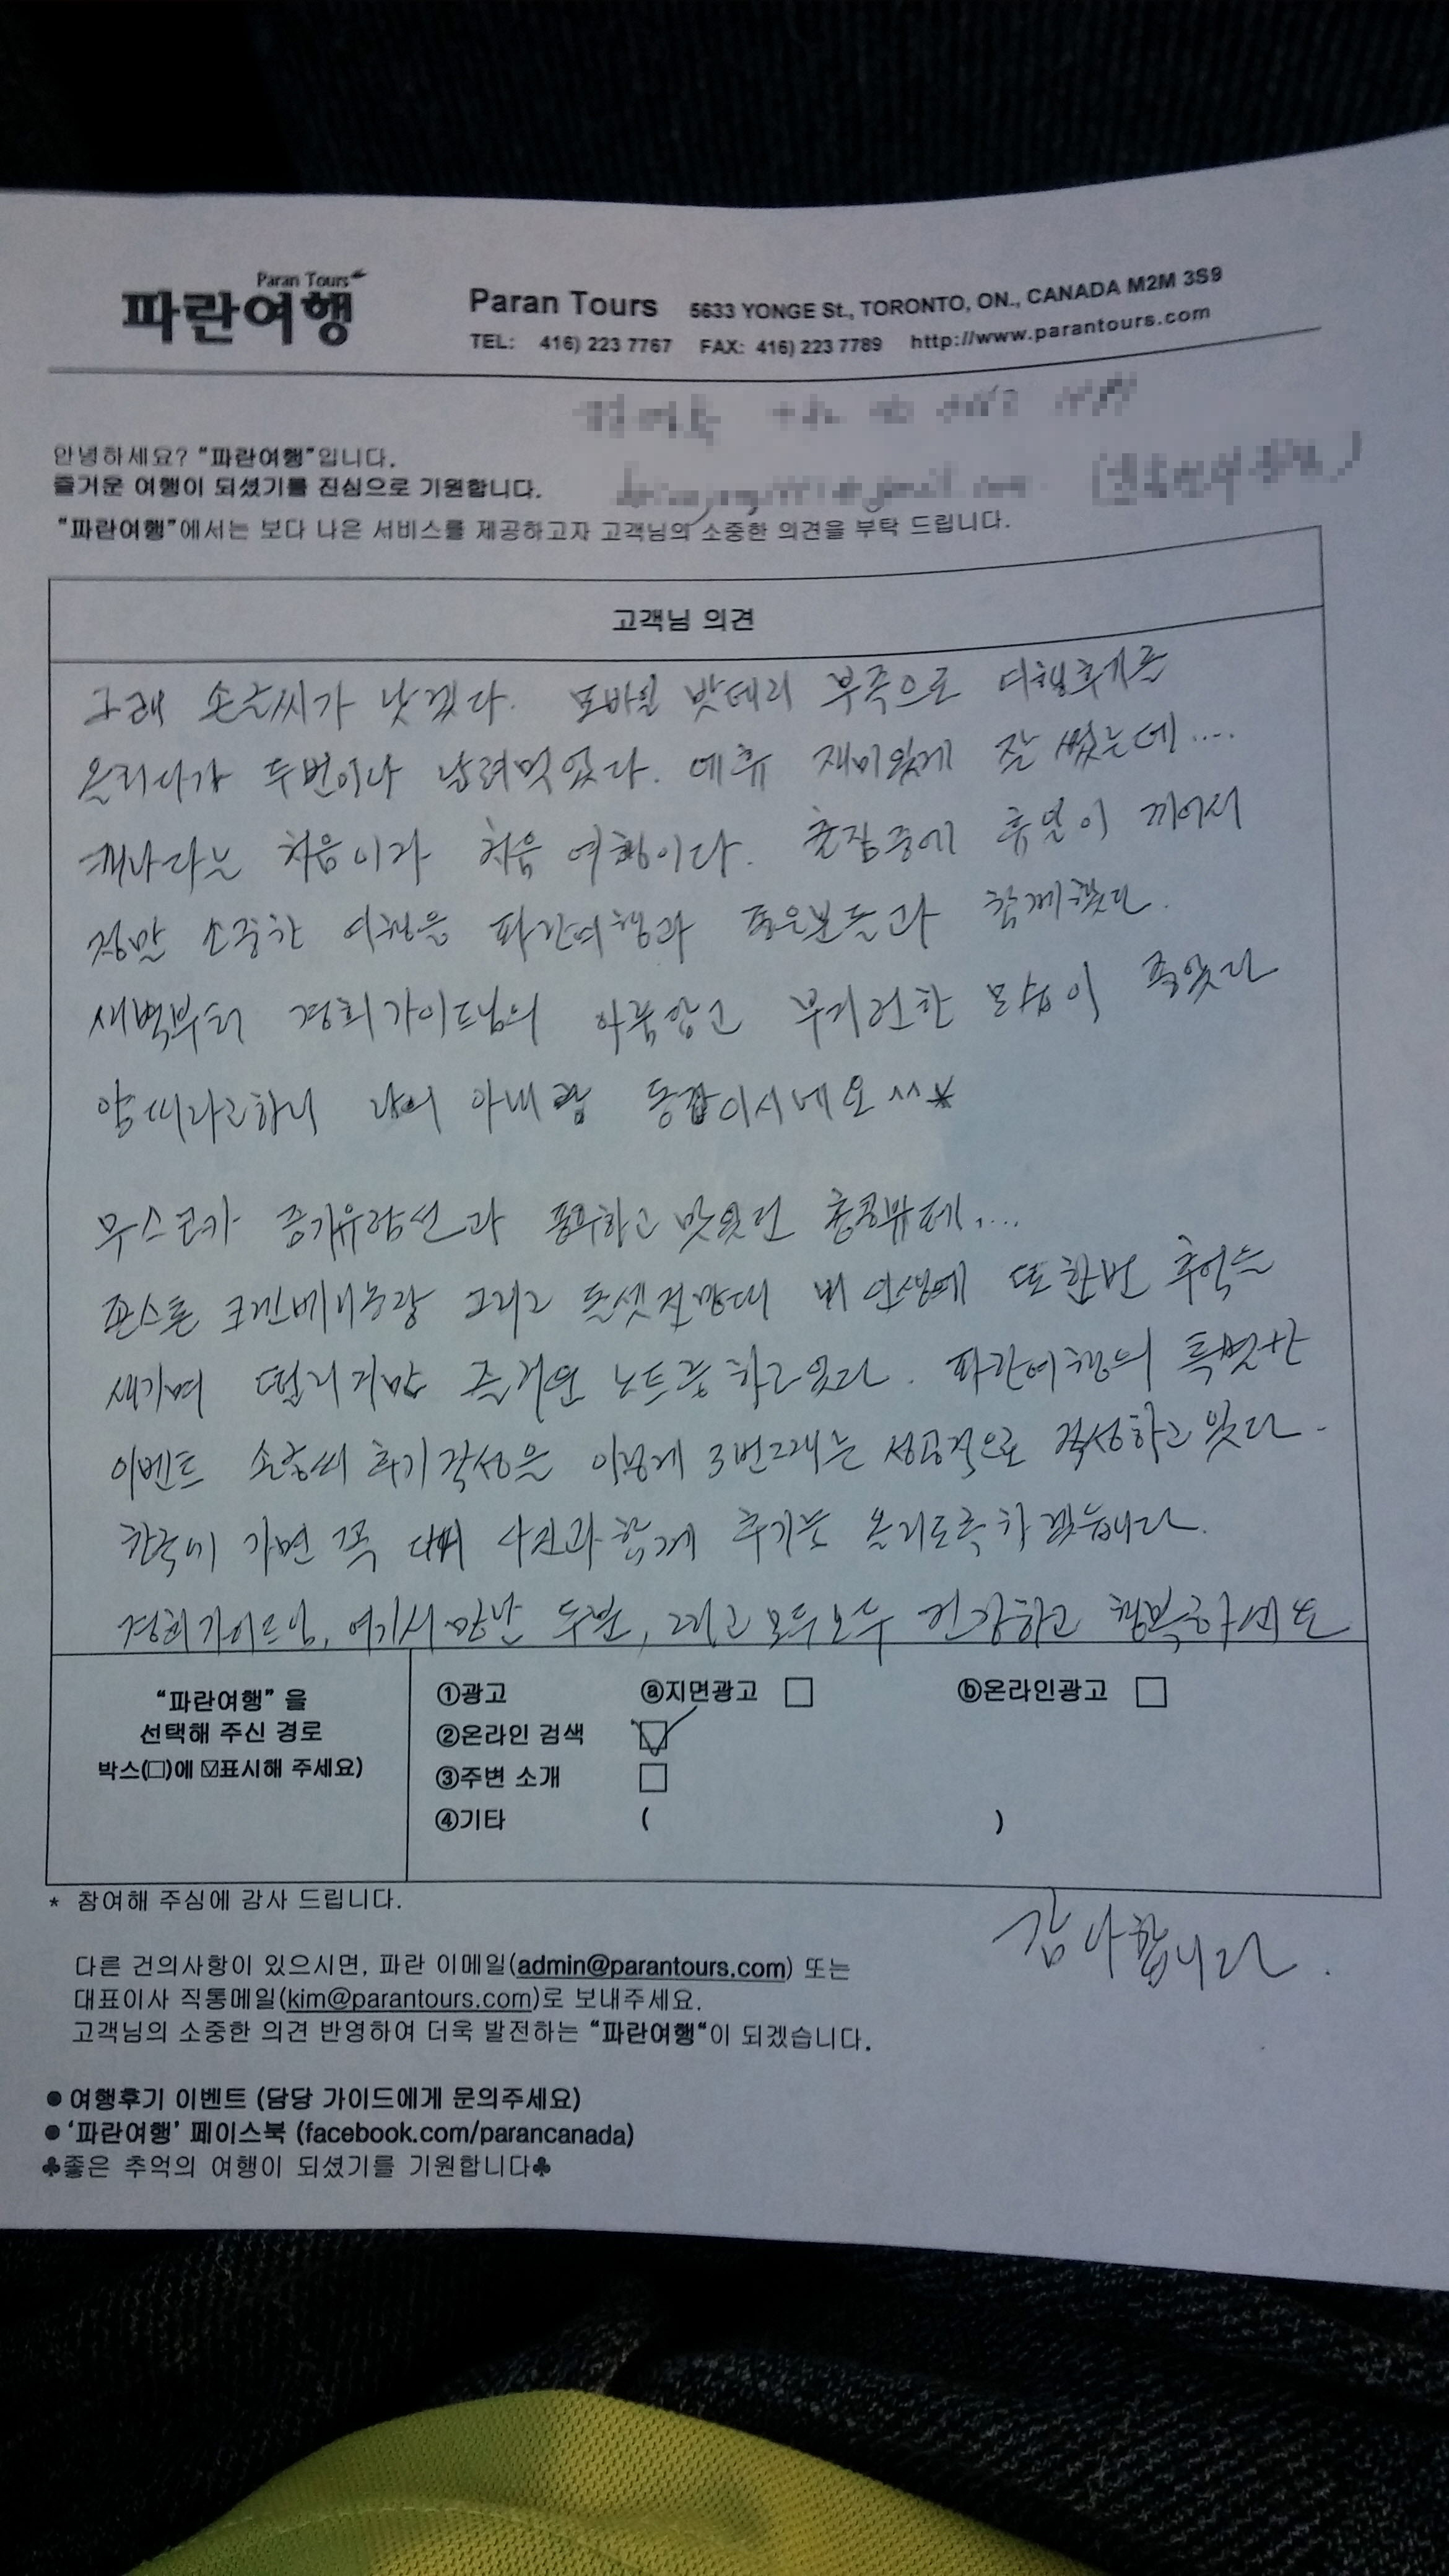 Paran Tours
파란여행
Paran Tours 5633 YONGE St., TORONTO, ON., CANADA M2M 3S9
TEL: 416) 223 7767 FAX: 416) 223 7789 http://www.parantours.com
안녕하세요? “파란여행”입니다.
즐거운 여행이 되셨기를 진심으로 기원합니다.
“파란여행”에서는 보다 나은 서비스를 제공하고자 고객님의 소중한 의견을 부탁 드립니다.
고객님 의견
그래 손글씨가 낫겠다. 모바일 밧데리 부족으로 여행후기를
올리다가 두번이나 날려먹었다. 에휴 재미있게 잘 썼는데....
캐나다는 처음이라 처음 여행이다. 출장중에 휴일이 끼어서
정말 소중한 여행을 파란여행과 좋은분들과 함께했다.
새벽부터 경희가이드님의 아름답고 부지런한 모습이
라고하니 나의 아내랑 동갑이시네요^^*
무스코카 증기유람선과 풍족하고 맛있던 홍콩뷔페....
존스톤 크랜베리농장 그리고 돌셋전망대 내 인생에 또한번 추억을
새기며 떨리지만 즐거운 노트를 하고있다. 파란여행의 특별한
이벤트 손글씨 후기작성을 이렇게 3번째는 성공적으로 작성하고 있다.
한국에 가면 꼭 사진과 함께 후기를 올리도록 하겠습니다.
경희가이드님, 여기서 만난 두분, 그리고 모두모두 건강하고 행복하세요
“파란여행” 을
선택해 주신 경로
박스(□)에 ☑표시해 주세요)
①광고 ⓐ지면광고 □ ⓑ온라인광고 □
②온라인 검색 ☑
③주변 소개 □
④기타 ( )
* 참여해 주심에 감사 드립니다.
감사합니다.
다른 건의사항이 있으시면, 파란 이메일(admin@parantours.com) 또는
대표이사 직통메일(kim@parantours.com)로 보내주세요.
고객님의 소중한 의견 반영하여 더욱 발전하는 “파란여행“이 되겠습니다.
● 여행후기 이벤트 (담당 가이드에게 문의주세요)
● ‘파란여행’ 페이스북 (facebook.com/parancanada)
♣좋은 추억의 여행이 되셨기를 기원합니다♣